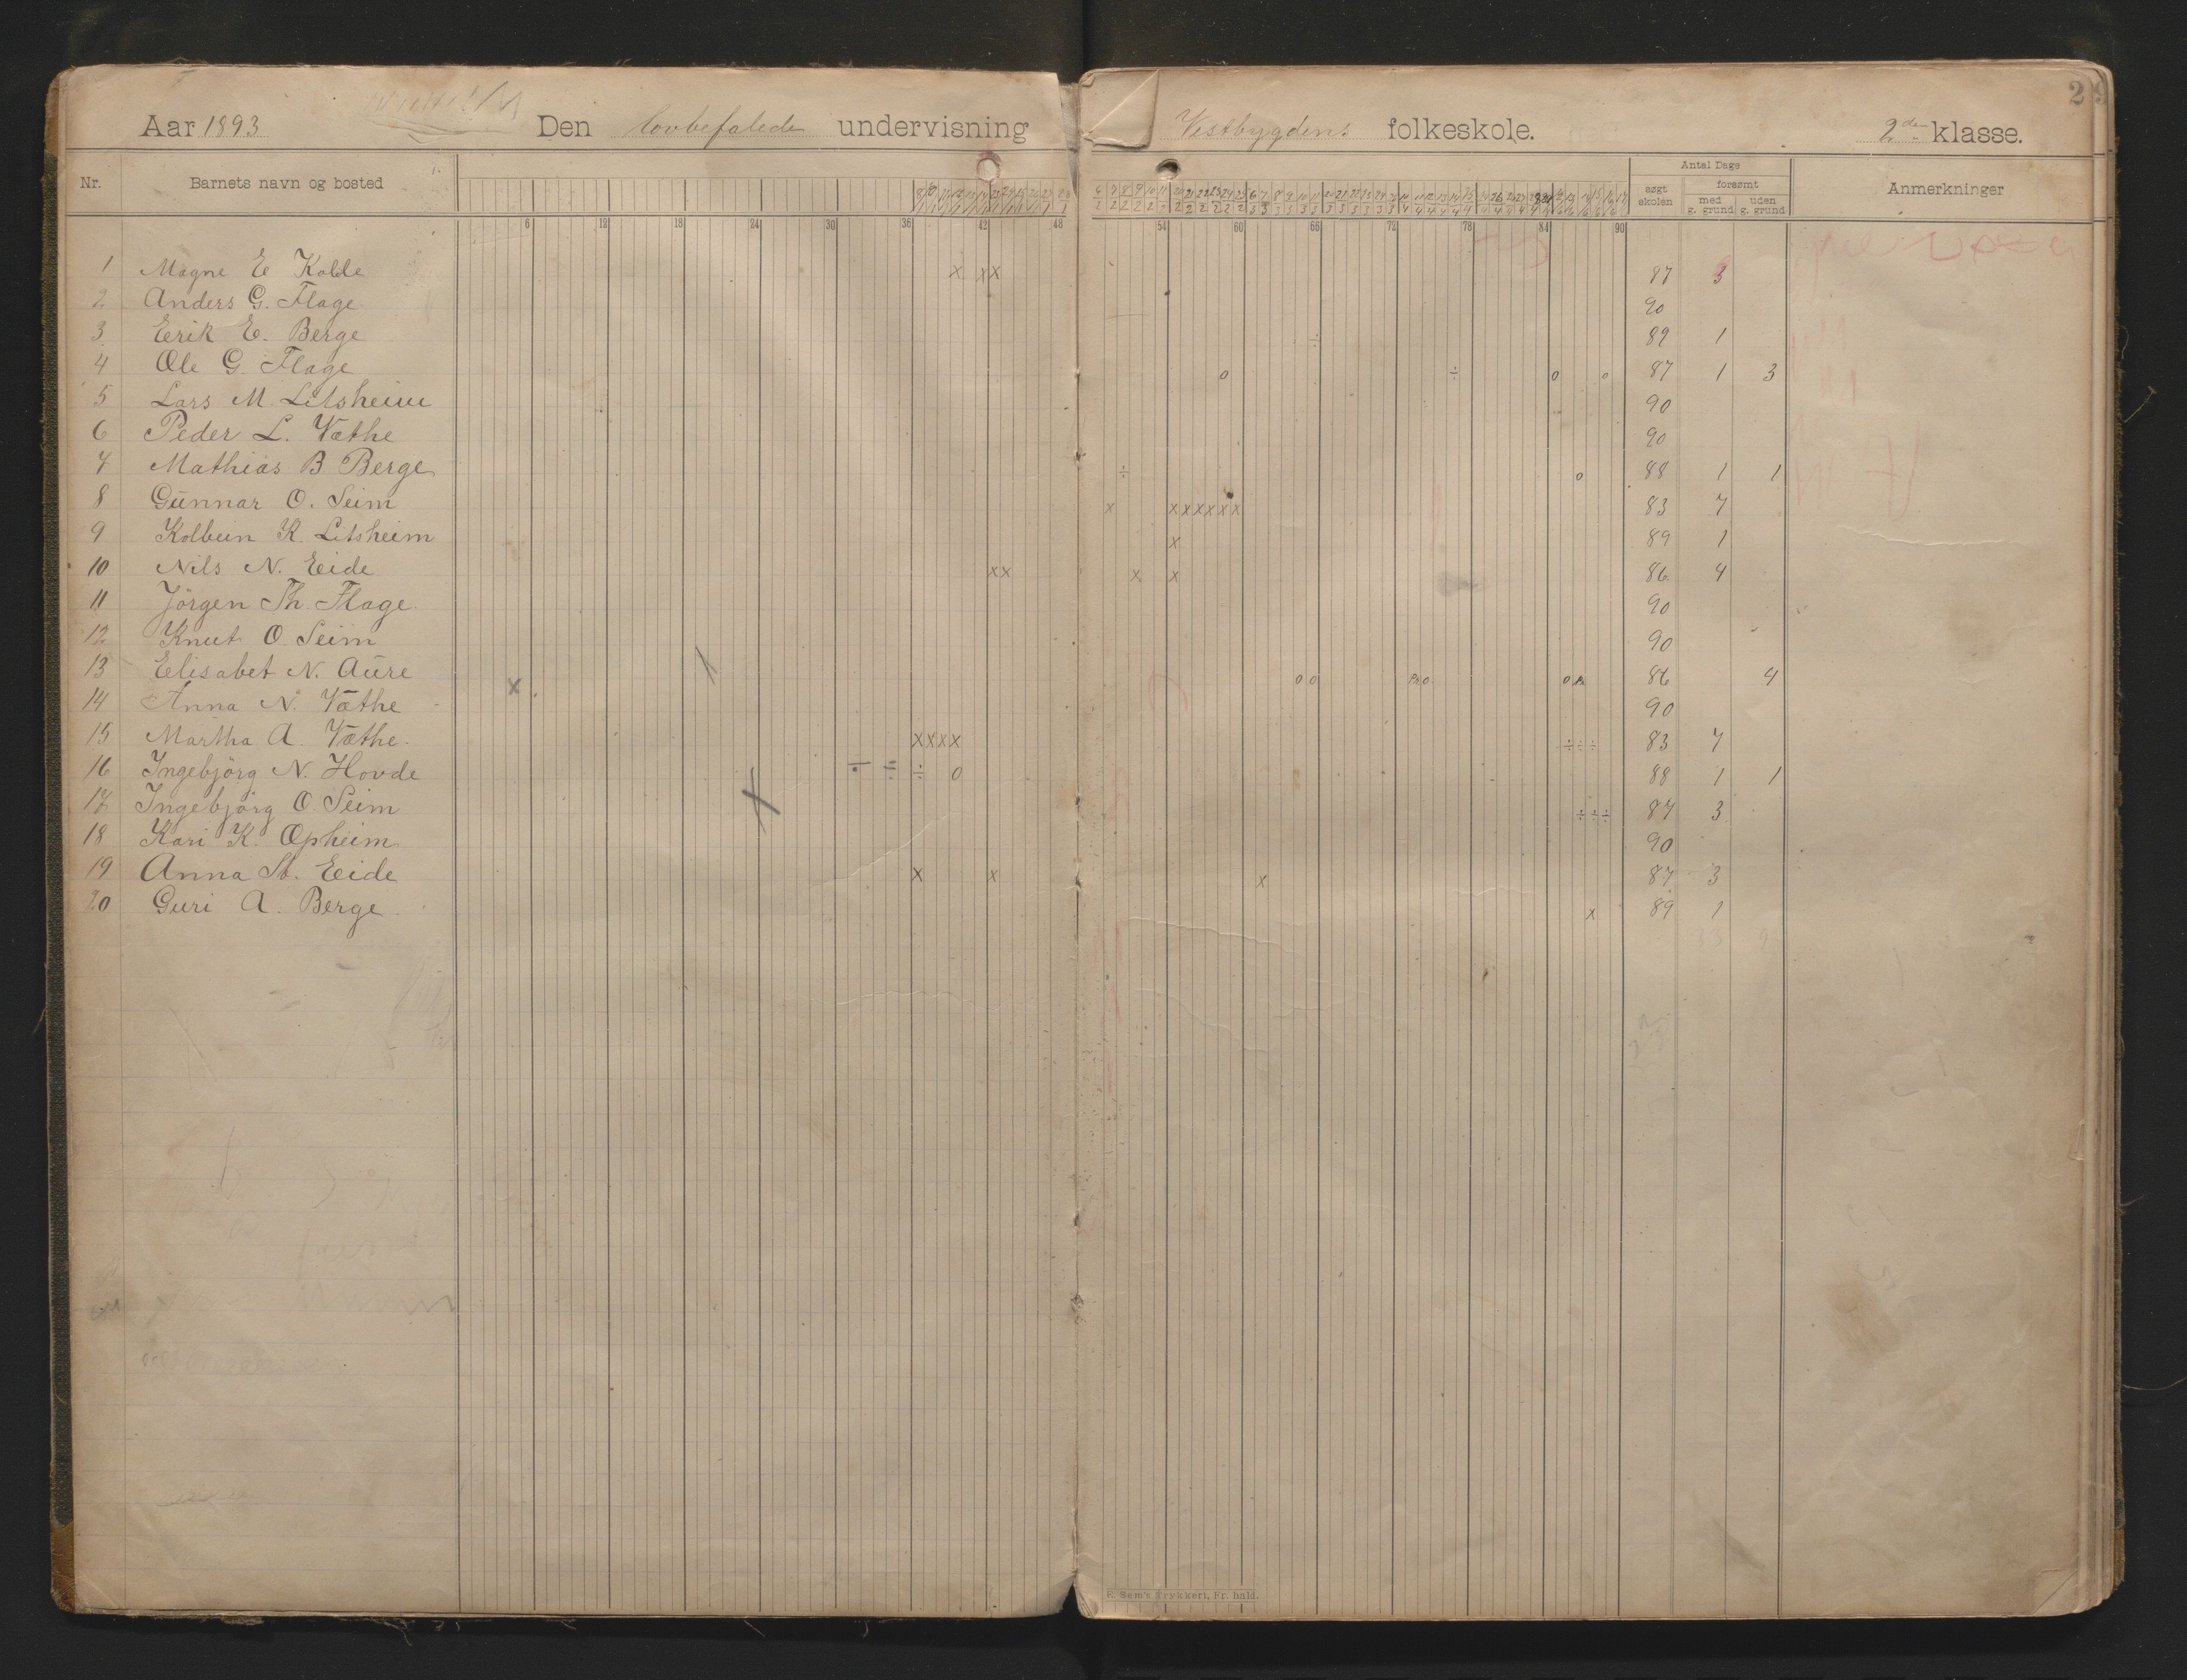 2
Aar 1893 Den lovbefalede undervisning Vestbygdens folkeskole. 2den klasse.
Nr. Barnets navn og bosted Antal Dage Anmerkninger
søgt skolen forsømt
med g. grund uden g. grund
6 12 18 24 30 36 42 48 54 60 66 72 78 84 90
1 Magne E Kolde x x x 87 3
2 Anders G. Flage 90
3 Eerik E. Berge ÷ 89 1
4 Ole G. Flage o ÷ o o 87 1 3
5 Lars M Litsheim 90
6 Peder L. Væthe 90
7 Mathias B Berge ÷ o 88 1 1
8 Gunnar O. Seim x x x x x x x 83 7
9 Kolbein K. Litsheim x 89 1
10 Nils N. Eide x x x x 86 4
11 Jörgen Th. Flage. 90
12 Knut O. Seim 90
13 Eelisabet N. Aure o o o o 86 4
14 Anna N. Væthe x 90
15 Martha A. Væthe. x x x x ÷ ÷ ÷ 83 7
16 Ingebjörg N. Hovde ÷ ÷ ÷ o 88 1 1
17 Ingebjörg O. Seim ÷ ÷ ÷ 87 3
18 Kari K. Opheim 90
19 Anna St. Eide x x x 87 3
20 Guri A. Berge x 89 1
33 9
E. Sem's Trykkeri, Fr. hald.